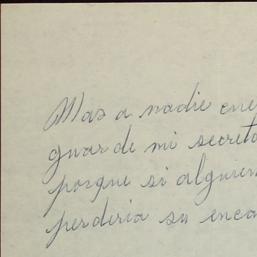 Mas a nadie cue
guarde mi secreto
porque si alguien
perderia su enca